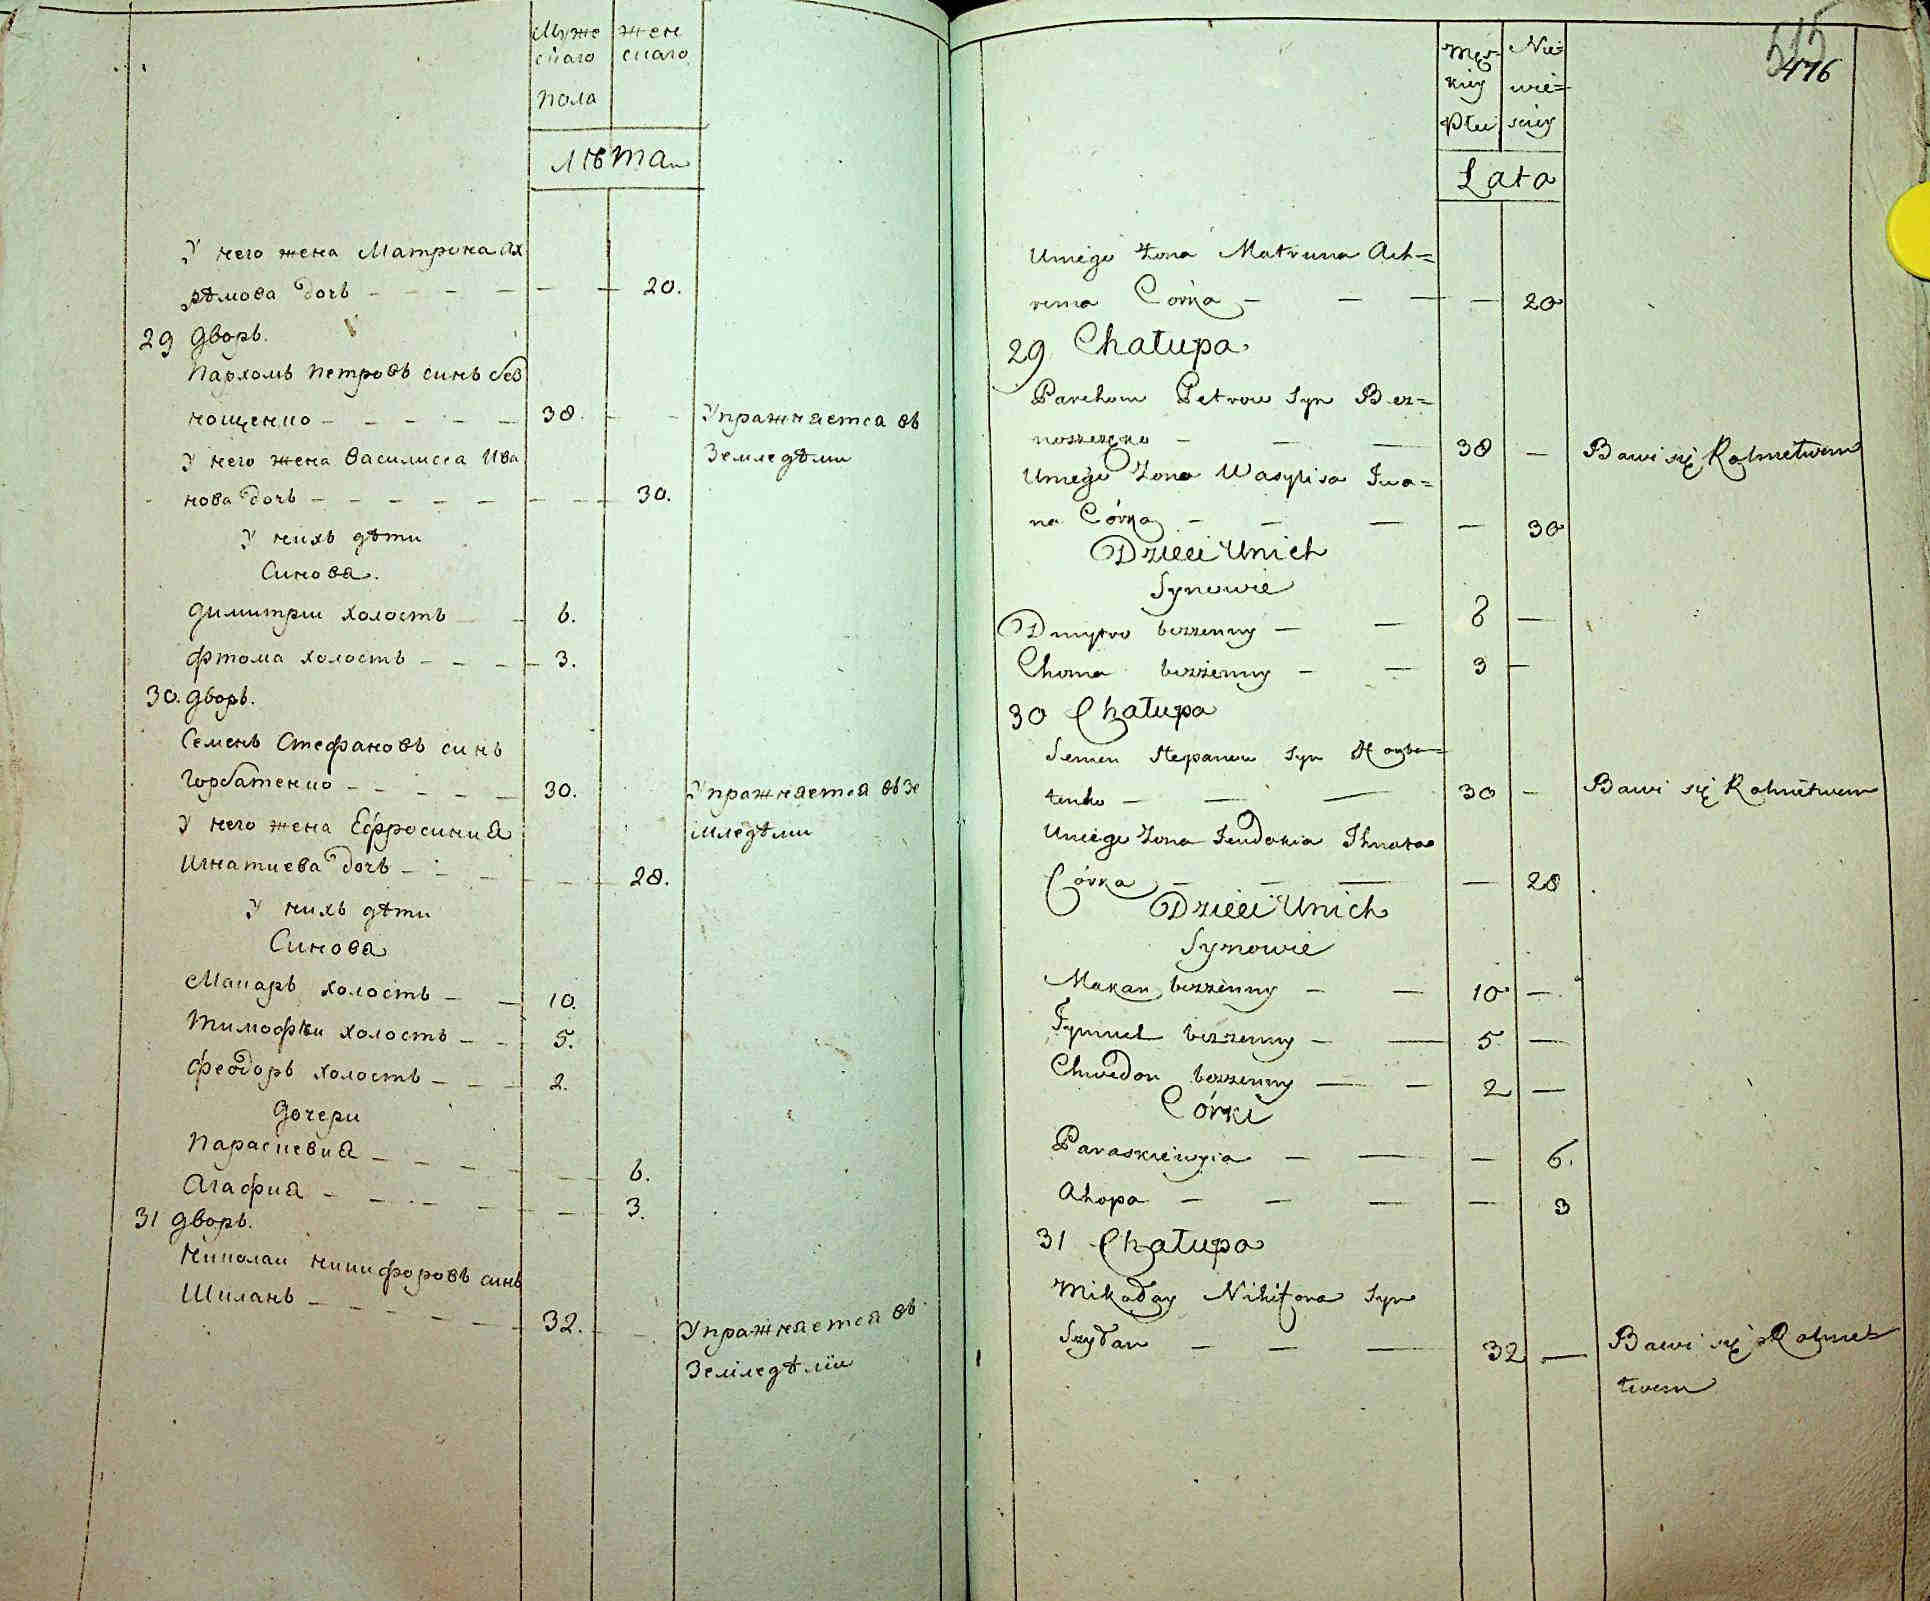 Муже
скаго
жен
скаго
пола
лѣта
У него жена Матрона Ах
рѣмова дочь 20.
29 дворъ.
Пархомъ Петровъ синъ Без
нощенко 38.
Упражняется въ
Земледѣли
У него жена Василисса Ива
нова дочь 30.
У нихъ дѣти
Синова.
Димитрии холостъ 6.
Фтома холостъ 3.
30. дворъ.
Семенъ Стефановъ синъ
Горбатенко 30.
Упражняется въ Зе
мледѣли
У него жена Ефросиния
Игнатиева дочь 28.
У нихъ дѣти
Синова
Макаръ холостъ 10.
Тимофѣи холостъ 5.
Феодоръ холостъ 2.
Дочери
Параскевия 6.
Агафия 3.
31 дворъ.
Николаи Никифоровъ синъ
Шиланъ 32.
Упражняется въ
Земледѣлїи
515
476
Męs=
kiey
Płci
Nie=
wie=
sciey
Lata
Uniego Zona Matruna Ach=
rema Córka 20
29 Chałupa
Parchom Petrow Syn Bez=
noszczęko 38
Bawi się Rolnictwem
Uniego Zona Wasylisa Iwa=
na Córka 30
Dzieci Unich
Synowie
Dmytro bezzenny 8
Choma bezżenny 3
30 Chałupa
Semen Stepanow Syn Horba=
tenko 30
Bawi się Rolnictwem
Uniego Zona Jeudokia Ihnata
Córka 28
Dzieci Unich
Synowie
Makar bezżenny 10
Tymuch bezzenny 5
Chwedor bezzenny 2
Córki
Paraskiewija 6.
Ahopa 3
31 Chałupa
Mikołay Nikifora Syn
Szyłan 32
Bawi się Rolnic=
twem